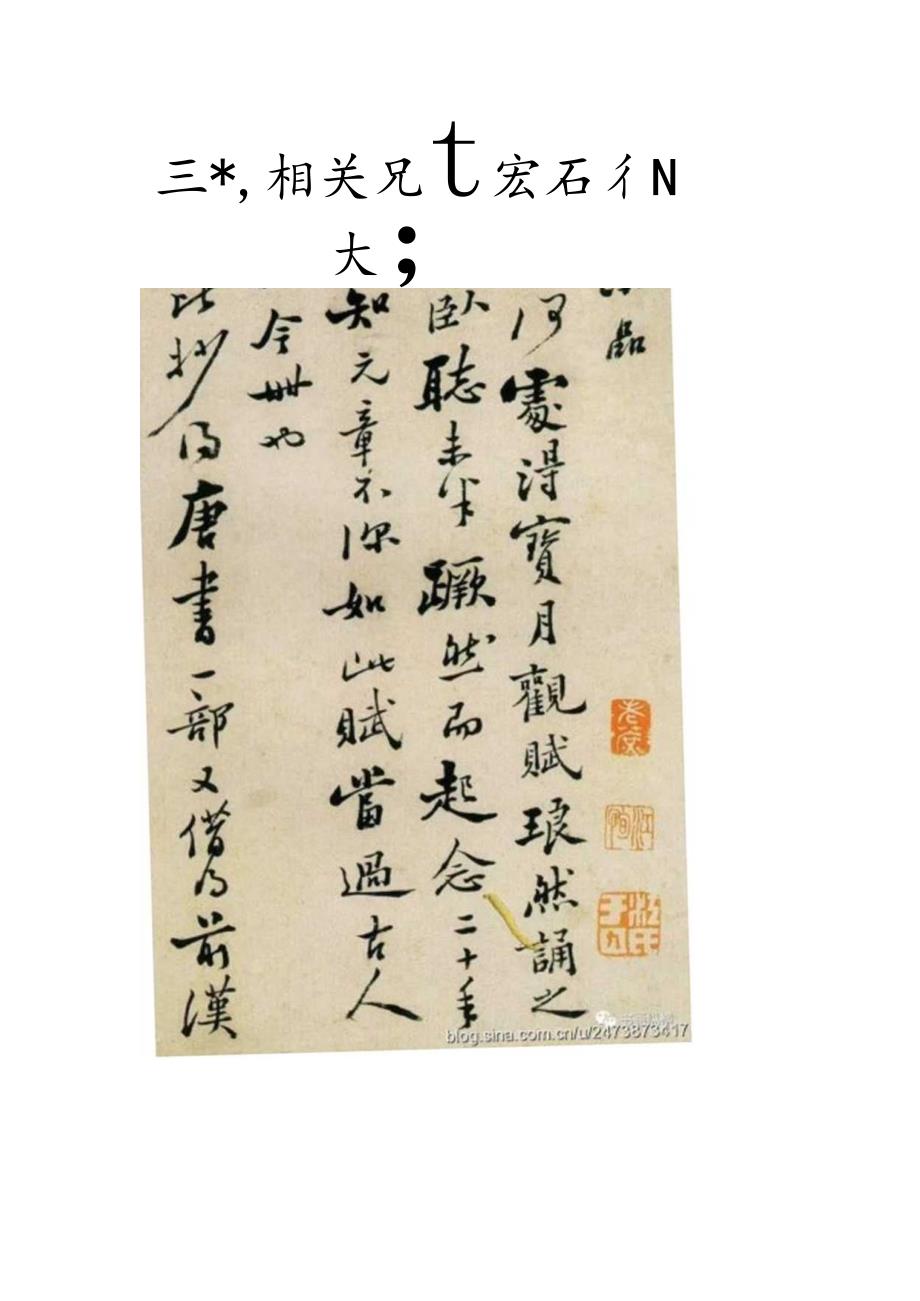 三*,相关兄t宏石彳N
大;
品
何處得寶月觀賦琅然誦之
臥聽未半蹶然而起念二十年
知元章不深如此賦當過古人
今世也
比抄得唐書一部又借得前漢
blog.sina.com.cn/u/2473873417